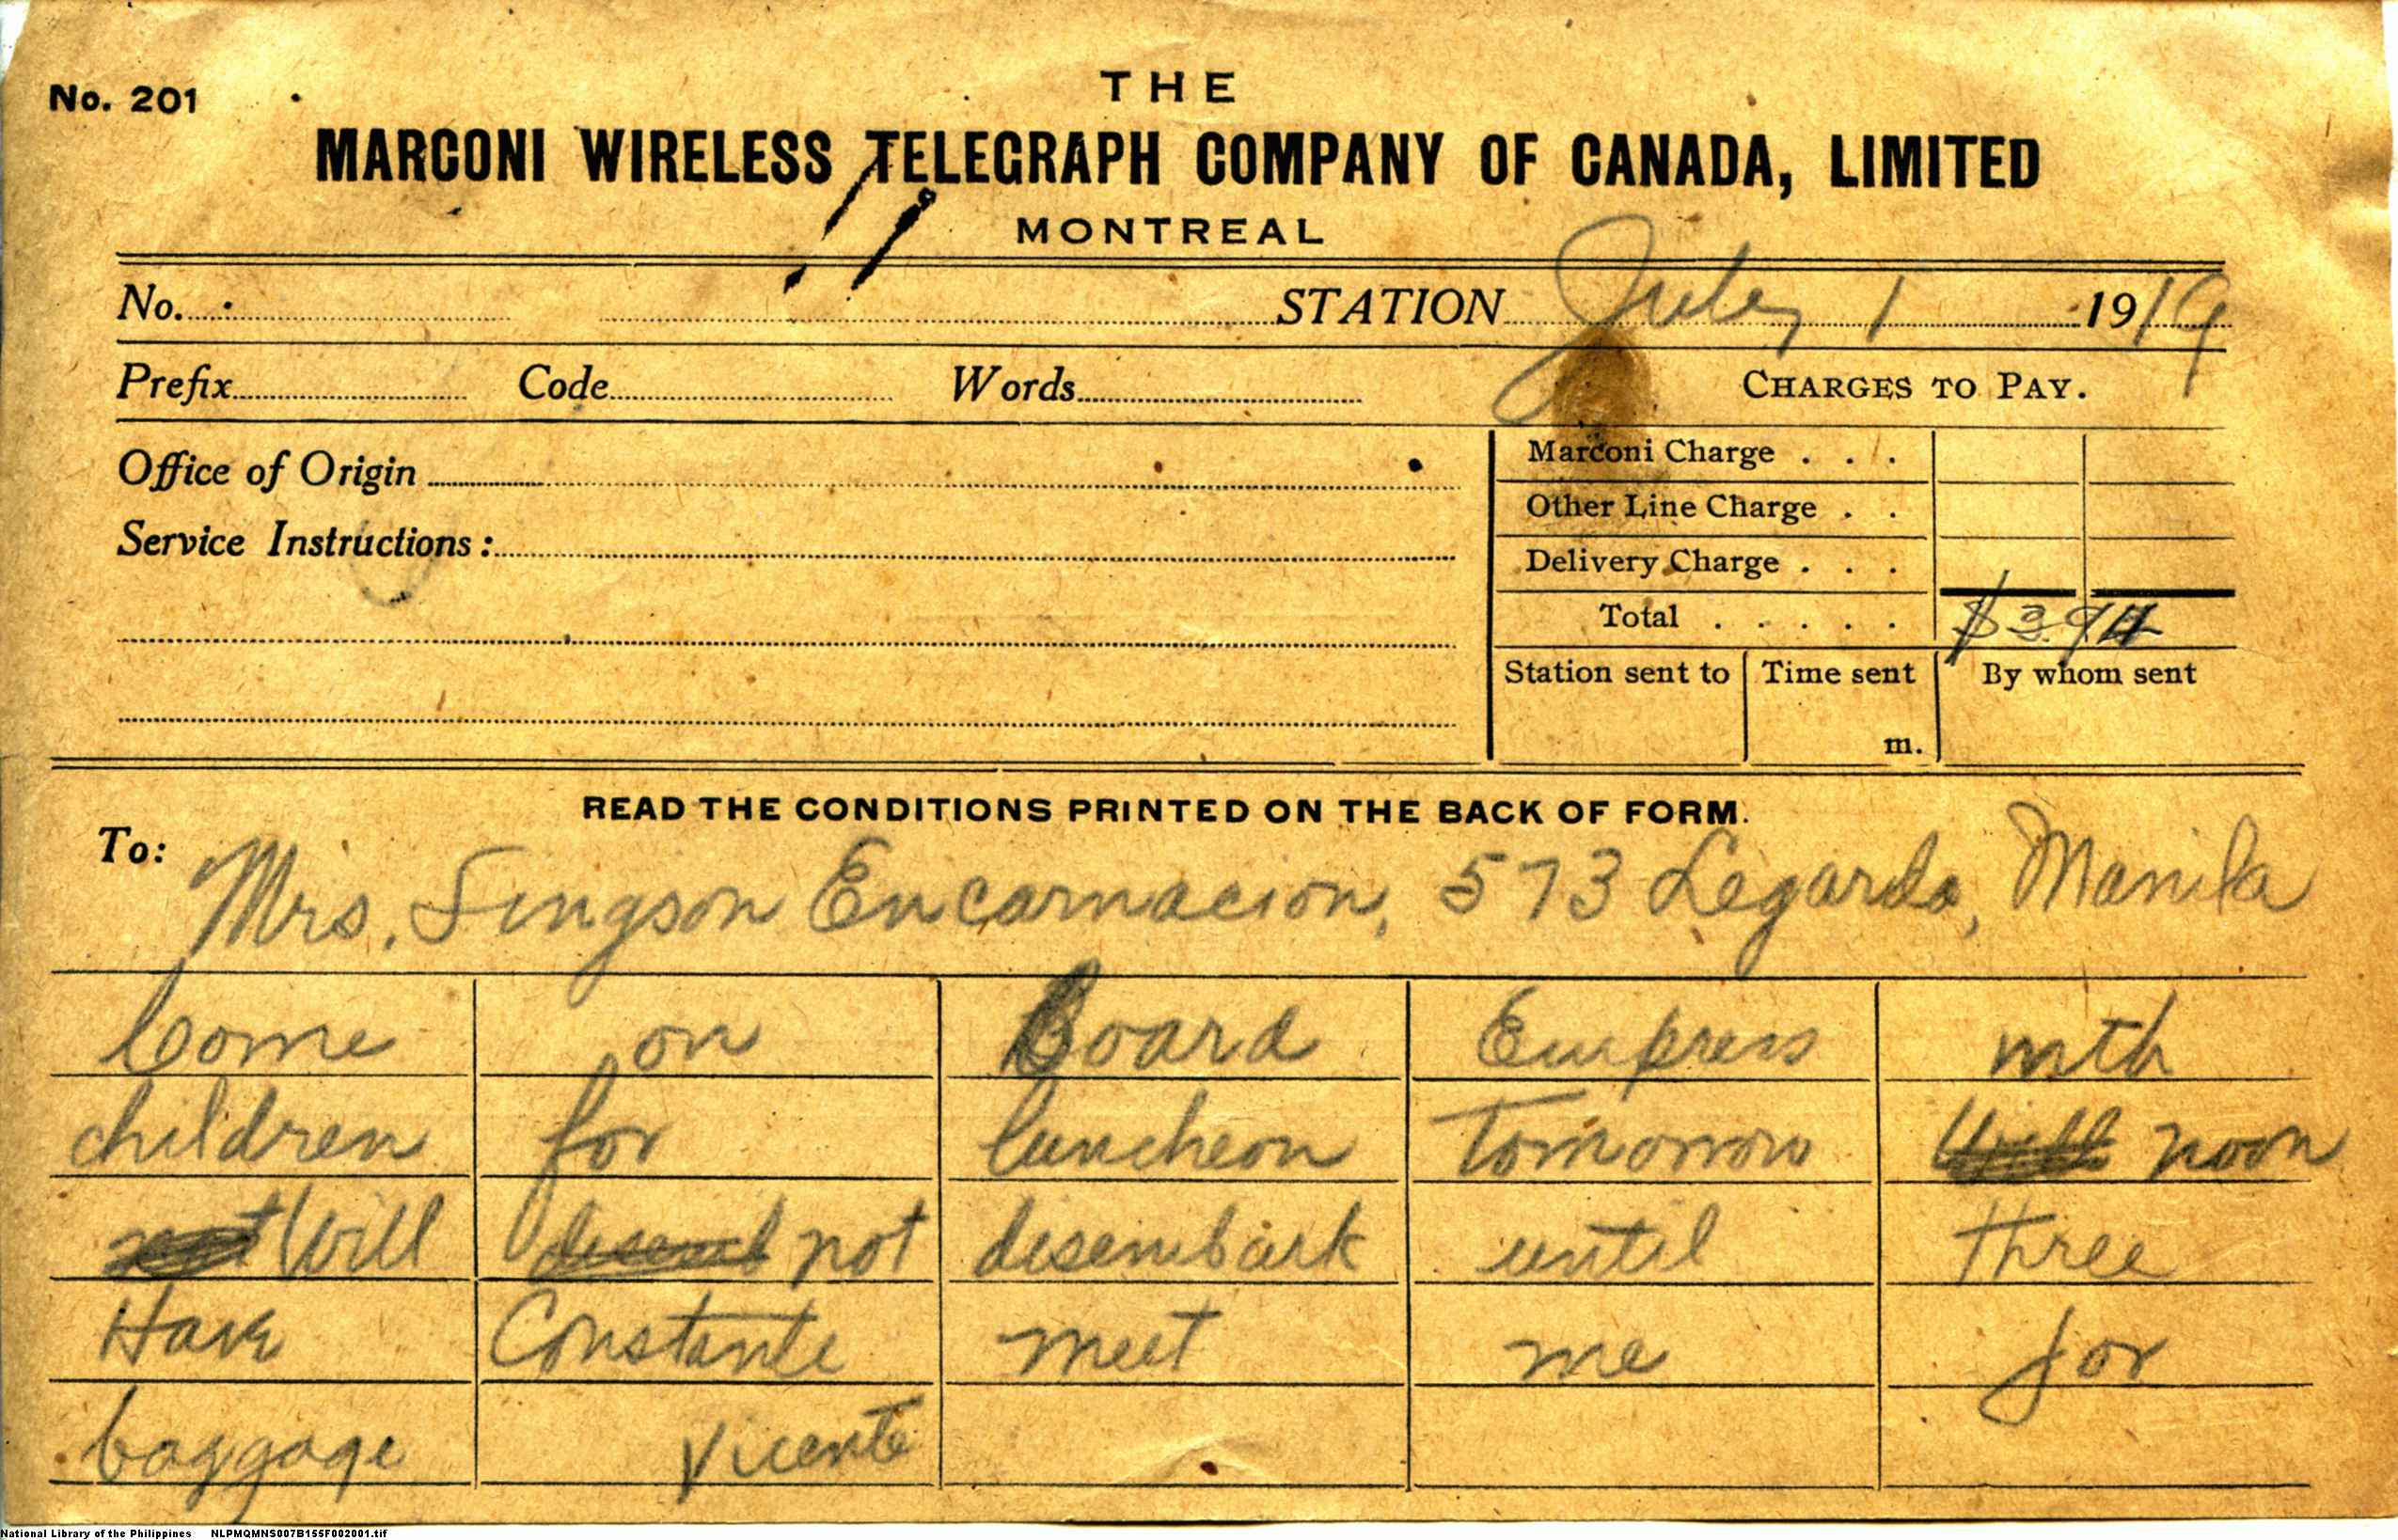 No. 201
THE
MARCONI WIRELESS TELEGRAPH COMPANY OF CANADA, LIMITED
MONTREAL
No. STATION July 1 1919
Prefix Code Words CHARGES TO PAY.
Office of Origin
Service Instructions:
Marconi Charge . . .
Other Line Charge . .
Delivery Charge . . .
Total . . . . . $3.94
Station sent to Time sent By whom sent
m.
READ THE CONDITIONS PRINTED ON THE BACK OF FORM.
To: Mrs. Singson Encarnacion, 573 Legarda, Manila
Come on Board Empress with
children for luncheon tomorrow noon
Will not disembark until three
Have Constante meet me for
baggage Vicente
National Library of the Philippines NLPMQMNS007B155F002001.tif